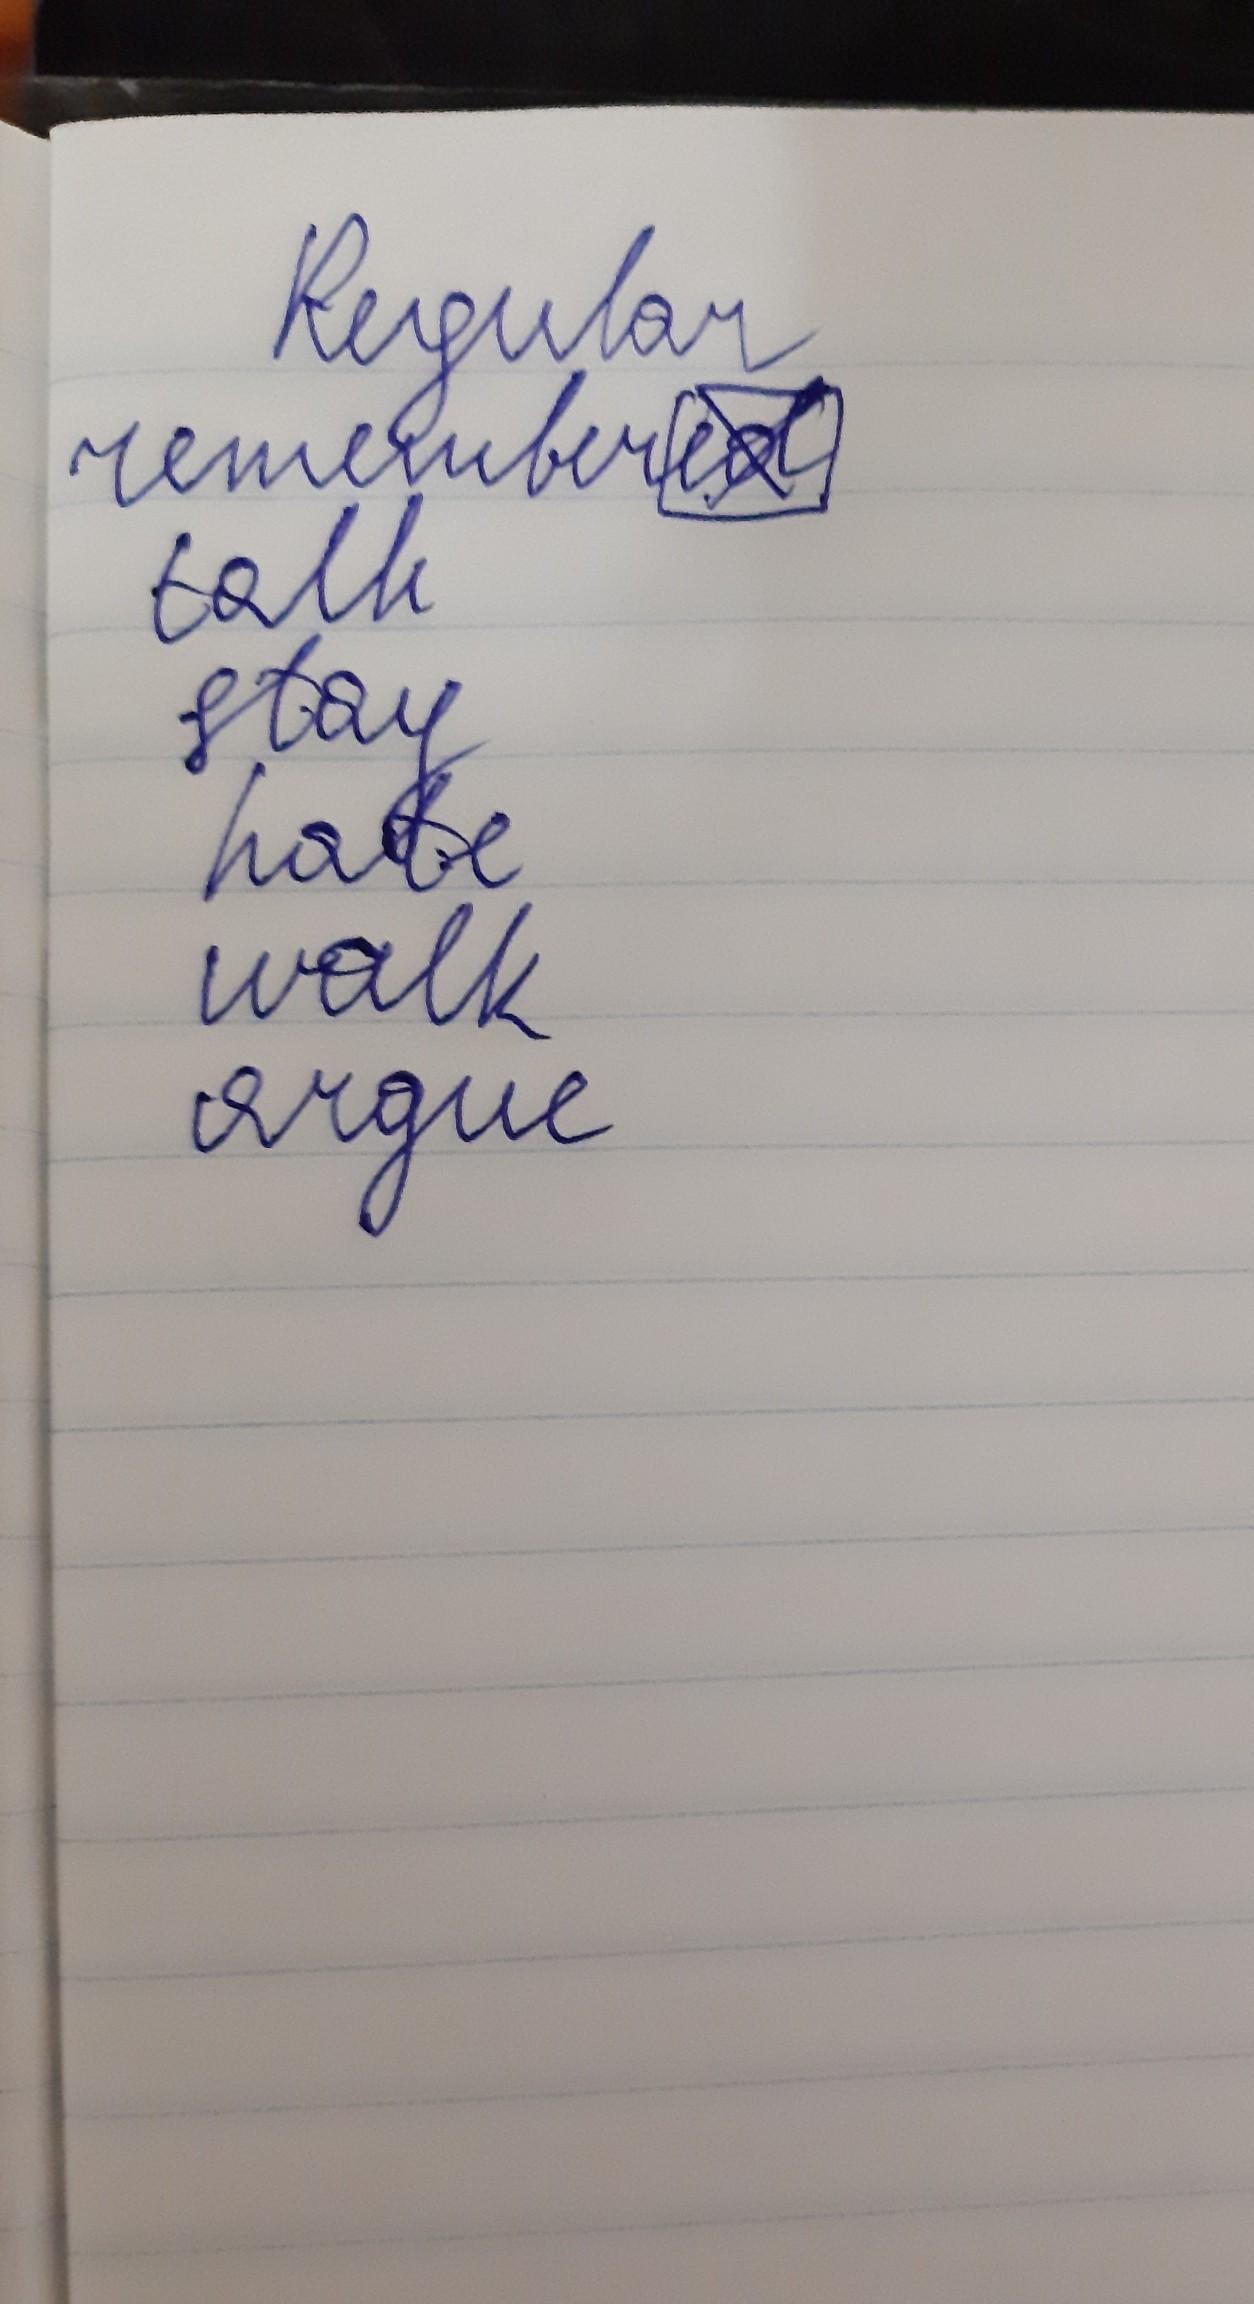 Regular
remembered
talk
stay
hate
walk
argue